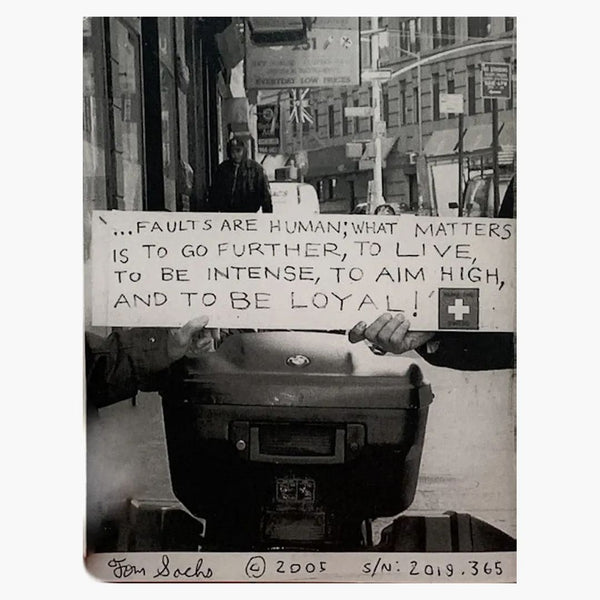 EVERYDAY LOW PRICES
"...FAULTS ARE HUMAN; WHAT MATTERS
IS TO GO FURTHER, TO LIVE,
TO BE INTENSE, TO AIM HIGH,
AND TO BE LOYAL!"
Tom Sachs © 2005 S/N: 2019.365